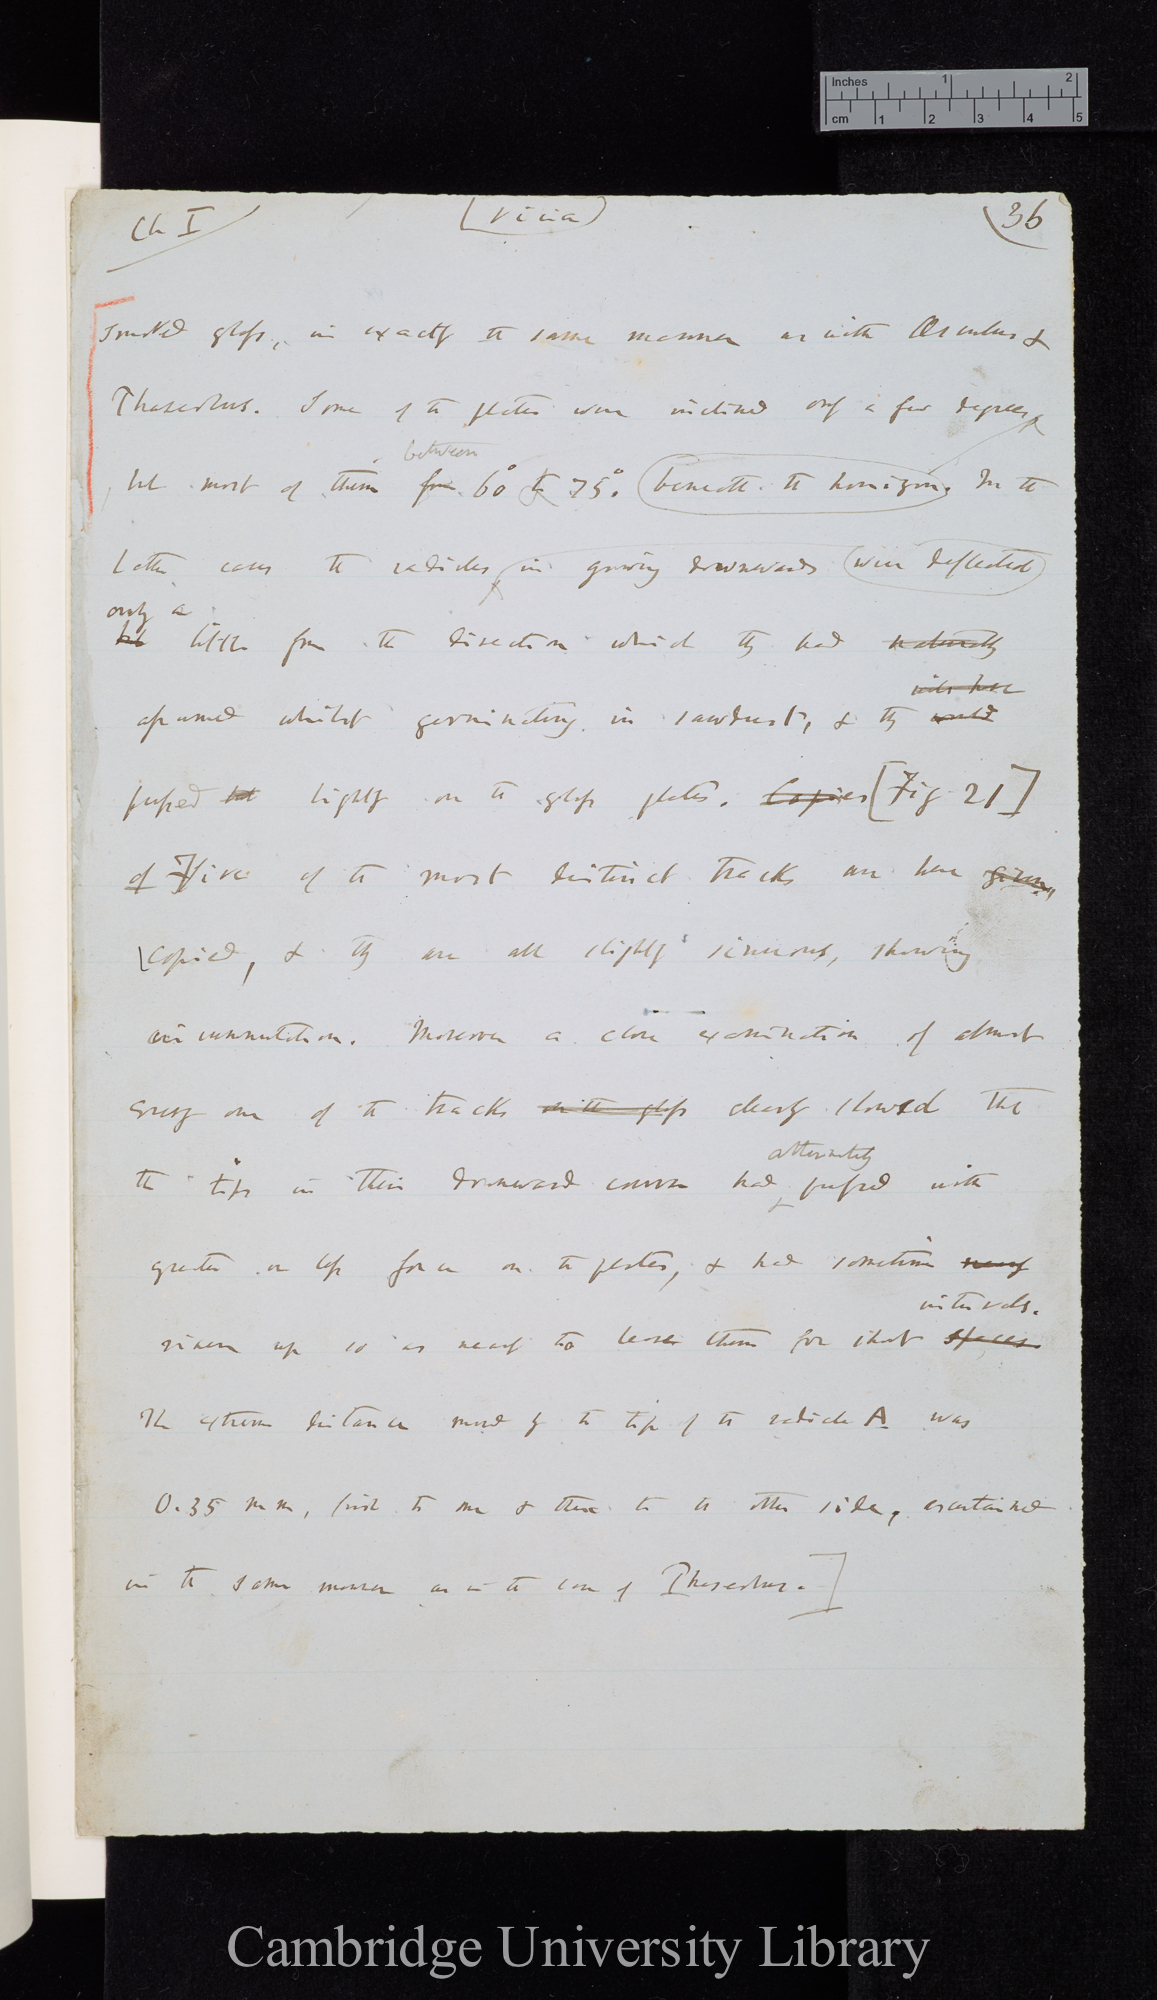 inches 1 2
cm 1 2 3 4 5
Ch I (Vicia) 36
smoked glass, in exactly the same manner as with Æsculus &
Phaseolus. Some of the plates were inclined only a few degrees
but most of them between
from 60° to 75°. beneath the horizon. In the
latter cases the radicles in growing downwards were deflected
only a
but little from the direction which they had naturally
assumed whilst germinating in sawdust, & they would
pressed but lightly on the glass plates. Copies [Fig 21]
of Five of the most distinct tracks are here given,
copied, & they are all slightly sinuous, showing
circumnutation. Moreover a close examination of almost
every one of the tracks with glass clearly showed that
alternately
the tips in their downward course had pressed with
greater or less force on the plates, & had sometimes nearly
intervals.
risen up so as nearly to leave them for short spaces
The extreme distance moved by the tip of the radicle A was
0.35 mm, first to one & then to the other side, ascertained
in the same manner as in the case of Phaseolus.]
Cambridge University Library